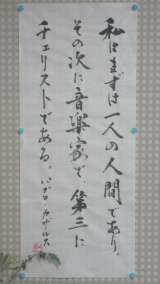 私はまずは一人の人間であり、
その次に音楽家で 第三に
チェリストである。 パブロ・カザルス